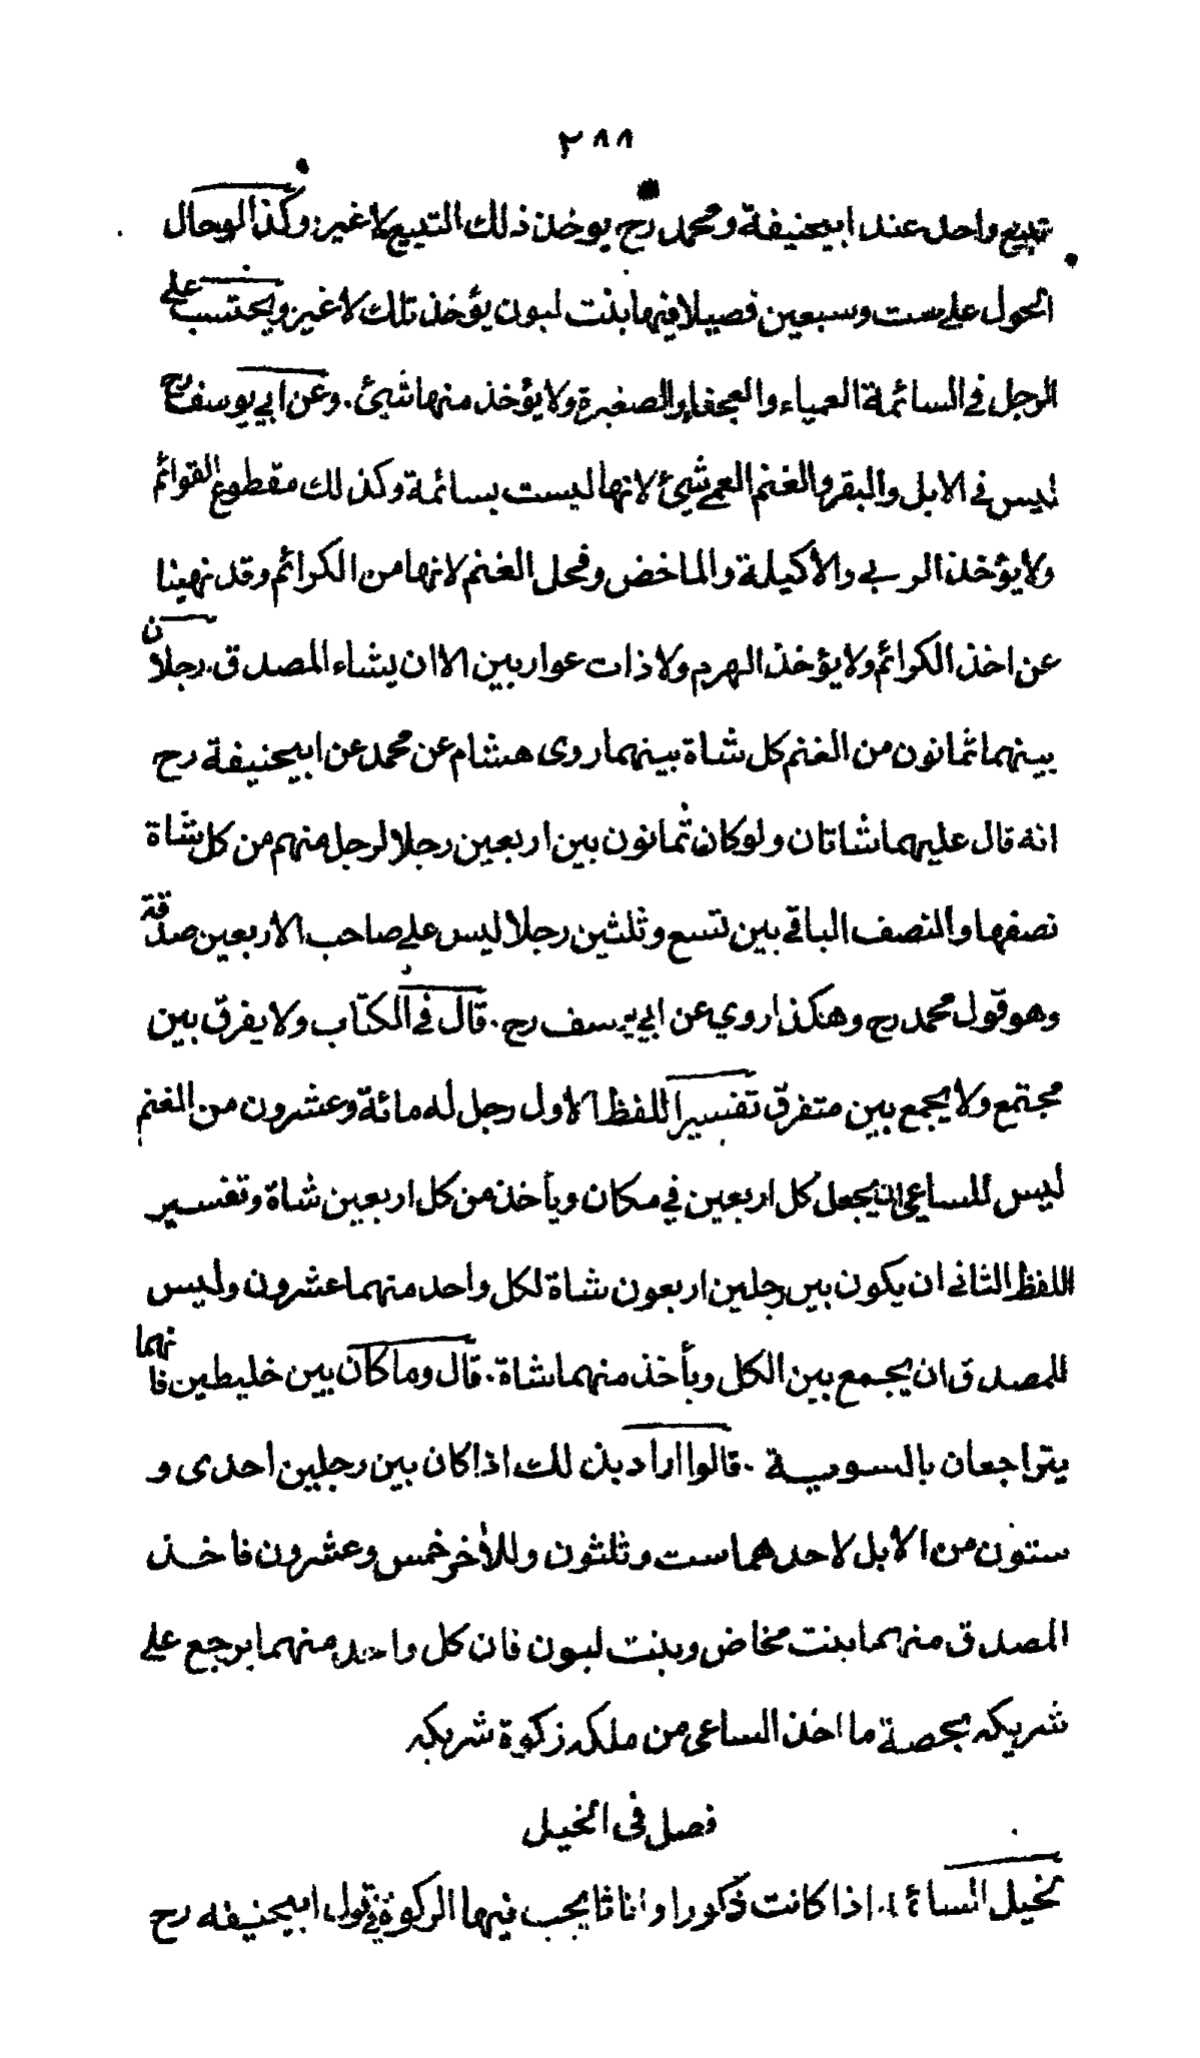 ٢٨٨
تبيع واحد عند ابيحنيفة ومحمد رح يوخذ ذلك التبيع لا غير وكذا لو حال
الحول على ست وسبعين فصيلا فيها بنت لبون يؤخذ تلك لا غير ويحتسب على
الرجل في السائمة العمياء والعجفاء والصغيرة ولا يؤخذ منها شئ . وعن ابي يوسف رح
ليس في الابل والبقر والغنم العمي شئ لانها ليست بسائمة وكذلك مقطوع القوائم
ولا يؤخذ الربي والاكيلة والماخض وفحل الغنم لانها من الكرائم وقد نهينا
عن اخذ الكرائم ولا يؤخذ الهرم ولا ذات عوار بين الا ان يشاء المصدق . رجلان
بينهما ثمانون من الغنم كل شاة بينهما روى هشام عن محمد عن ابيحنيفة رح
انه قال عليهما شاتان ولو كان ثمانون بين اربعين رجلا لرجل منهم من كل شاة
نصفها والنصف الباقي بين تسع وثلثين رجلا ليس على صاحب الاربعين صدقة
وهو قول محمد رح وهكذا روي عن ابي يوسف رح . قال في الكتاب ولا يفرق بين
مجتمع ولا يجمع بين متفرق تفسير اللفظ الاول رجل له مائة وعشرون من الغنم
ليس للساعي ان يجعل كل اربعين في مكان ويأخذ من كل اربعين شاة وتفسير
اللفظ الثاني ان يكون بين رجلين اربعون شاة لكل واحد منهما عشرون وليس
للمصدق ان يجمع بين الكل ويأخذ منهما شاة . قال وما كان بين خليطين فانهما
يتراجعان بالسوية . قالوا اراد بذلك اذا كان بين رجلين احدى و
ستون من الابل لاحدهما ست وثلثون وللآخر خمس وعشرون فاخذ
المصدق منهما بنت مخاض وبنت لبون فان كل واحد منهما يرجع على
شريكه بحصة ما اخذ الساعى من ملكه زكوة شريكه
فصل فى الخيل
الخيل السائمة . اذا كانت ذكورا واناثا يجب فيها الزكوة في قول ابيحنيفه رح